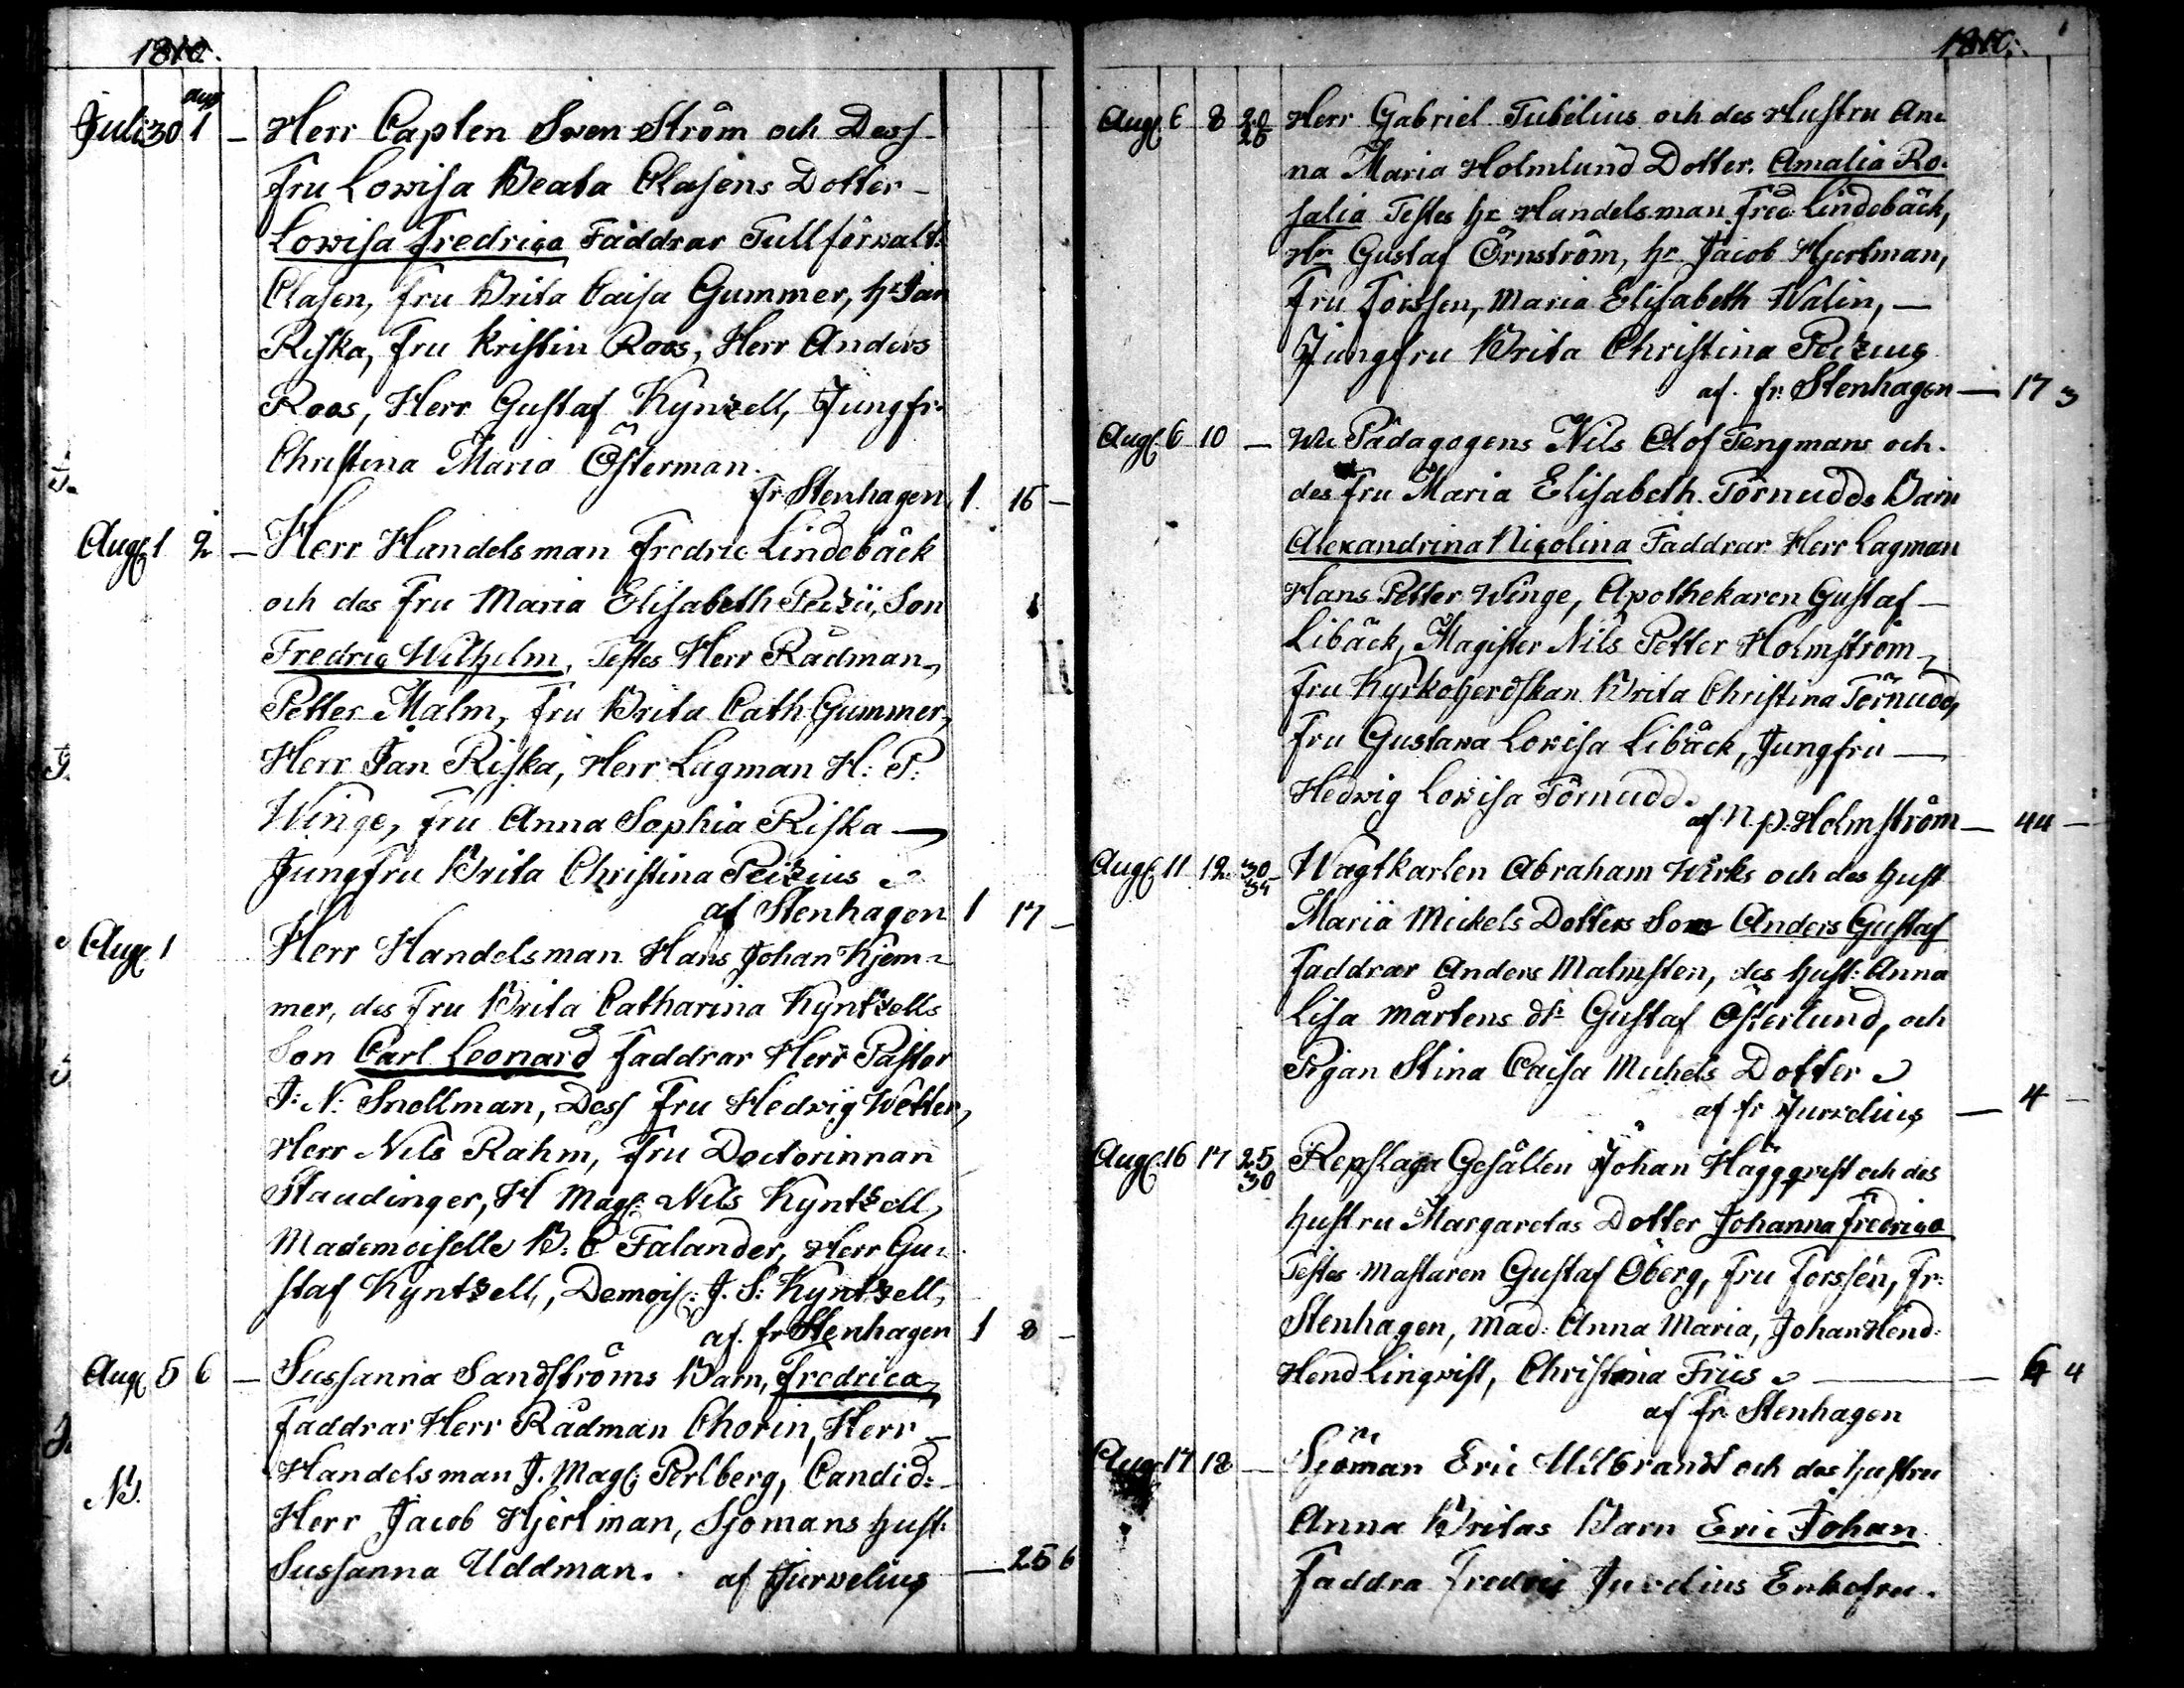 1810.
aug
Juli 30 1 — Herr Capten Swen Ström och Dess
Fru Lowisa Beata Clasens Dotter —
Lowisa Fredrica Faddrar Tullförwalt:
Clasen, fru Brita Caisa Gummer, hr Jan
Riska, Fru Kristin Roos, Herr Anders
Roos, Herr Gustaf Kyntzell, Jungfr.
Christina Maria Österman.
fr Stenhagen 1. 16 —
Aug 1 2 — Herr Handelsman Fredric Lindebäck
och des Fru Maria Elisabeth Peizii, Son
Fredric Wilhelm, Testes Herr Rådman
Petter Malm, Fru Brita Cath Gummer,
Herr Jan Riska, Herr Lagman H: P:
Winge, Fru Anna Sophia Riska —
Jungfru Brita Christina Peizius
af Stenhagen 1 17 —
Aug 1 Herr Handelsman Hans Johan Kjem-
mer, des Fru Brita Catharina Kyntzells
Son Carl Leonard Faddrar Herr Pastor
J: N: Snellman, Dess Fru Hedvig Wetter,
Herr Nils Rahm, Fru Doctorinnan
Staudinger, H Mag: Nils Kyntzell,
Mademoiselle B: C Falander, Herr Gu-
staf Kyntzell, Demois: J. S: Kyntzell,
af. fr Stenhagen 1 8 —
Aug 5 6 — Sussanna Sandströms Barn, Fredrica,
Faddrar Herr Rådman Chorin, Herr —
Handelsman J. Mag: Perlberg, Candid:
NB.
Herr Jacob Hjertman, Sjömans hust:
Sussanna Uddman. af Jurvelius — 25 6
1810.
Aug 6 8 20 Herr Gabriel Tubelius och des Hustru An-
25
na Maria Holmlund Dotter. Amalia Ro-
salia Testes hr Handelsman Fred Lindebäck,
Hr Gustaf Örnström, hr Jacob Hjertman,
Fru Forssen, Maria Elisabeth Walin, —
Jungfru Brita Christina Peizius
af. fr: Stenhagen — 17 3
Aug 6 10 — Pädagogens Nils Olof Tengmans och
des Fru Maria Elisabeth Törnudds Barn
Alexandrina Nicolina Faddrar Herr Lagman
Hans Petter Winge, Apothekaren Gustaf —
Libäck, Magister Nils Petter Holmström
Fru Kyrkoherdskan Brita Christina Törnudd,
Fru Gustava Lowisa Libäck, Jungfru —
Hedvig Lowisa Törnudd.
af N. P. Holmström — 44 —
Aug 11 12 30 Wagtkarlen Abraham Wirks och des hust
Maria Mickels Dotters Son Anders Gustaf
Faddrar Anders Malmsten, des hust: Anna
Lisa Mårtens dr Gustaf Österlund, och
Pigan Stina Caisa Michels Dotter
af fr Jurvelius — 4 —
Aug 16 17 25 Repslaga Gesällen Johan Häggqvist och des
30
hustru Margaretas Dotter Johanna Fredrica
Testes Mästaren Gustaf Öberg, Fru Forssén, Fr:
Stenhagen, mad: Anna Maria, Johan Hend:
Hend Linqvist, Christina Friis — 4
af Fr: Stenhagen
Aug 17 18 — Sjöman Eric Milbrandt och des hustru
Anna Britas Barn Eric Johan
Faddra Fredric Jurvelius Enkefru.